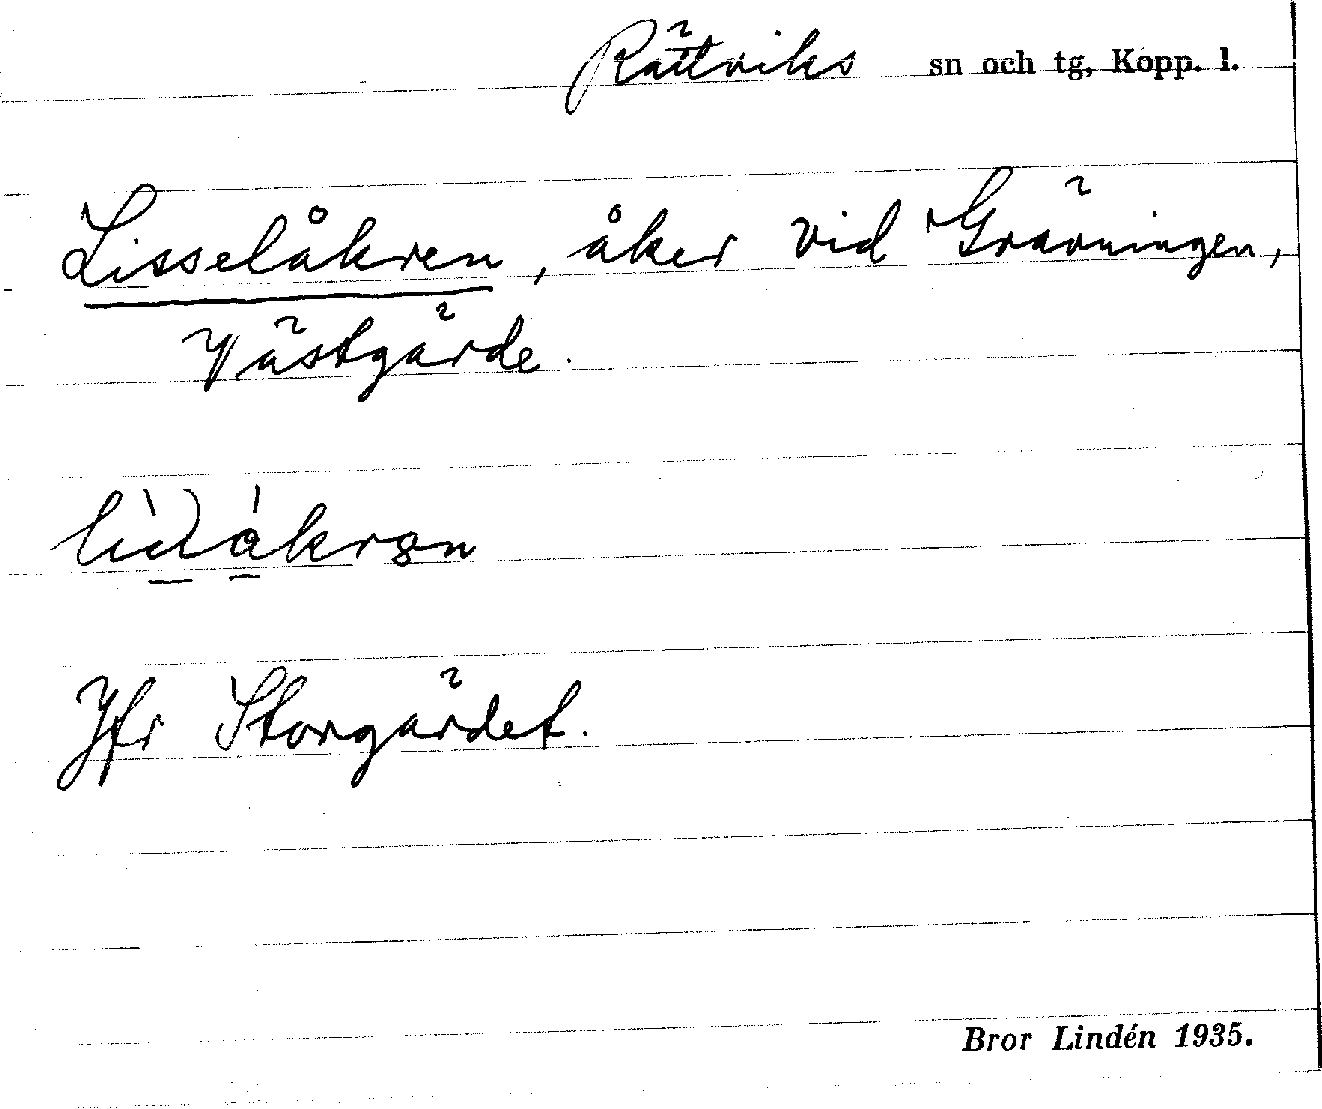 Rättviks sn och tg, Kopp. l.
Lisselåkren, åker vid Grävningen,
Västgärde.
Jfr Storgärdet.
Bror Lindén 1935.